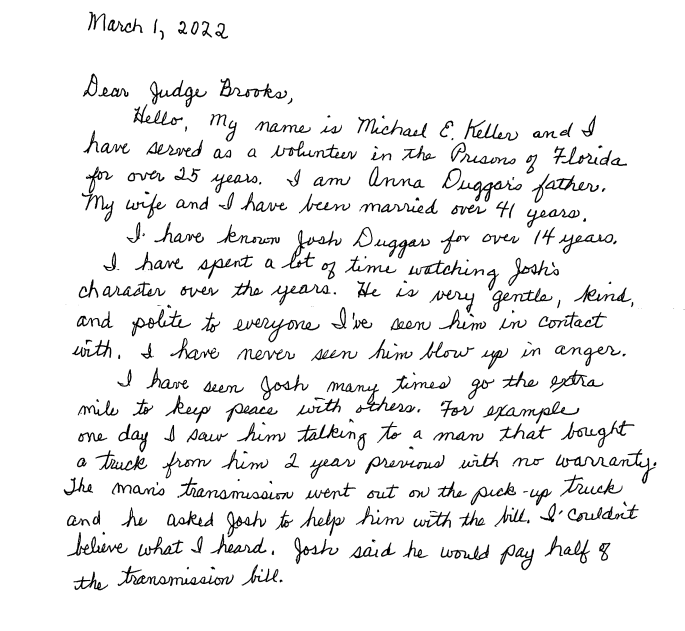 March 1, 2022
Dear Judge Brooks,
Hello, My name is Michael E. Keller and I
have served as a volunteer in the Prisons of Florida
for over 25 years. I am Anna Duggar's father.
My wife and I have been married over 41 years.
I have known Josh Duggar for over 14 years.
I have spent a lot of time watching Josh's
character over the years. He is very gentle, kind,
and polite to everyone I've seen him in contact
with. I have never seen him blow up in anger.
I have seen Josh many times go the extra
mile to keep peace with others. For example
one day I saw him talking to a man that bought
a truck from him 2 year previous with no warranty.
The man's transmission went out on the pick-up truck
and he asked Josh to help him with the bill. I couldn't
believe what I heard. Josh said he would pay half of
the transmission bill.